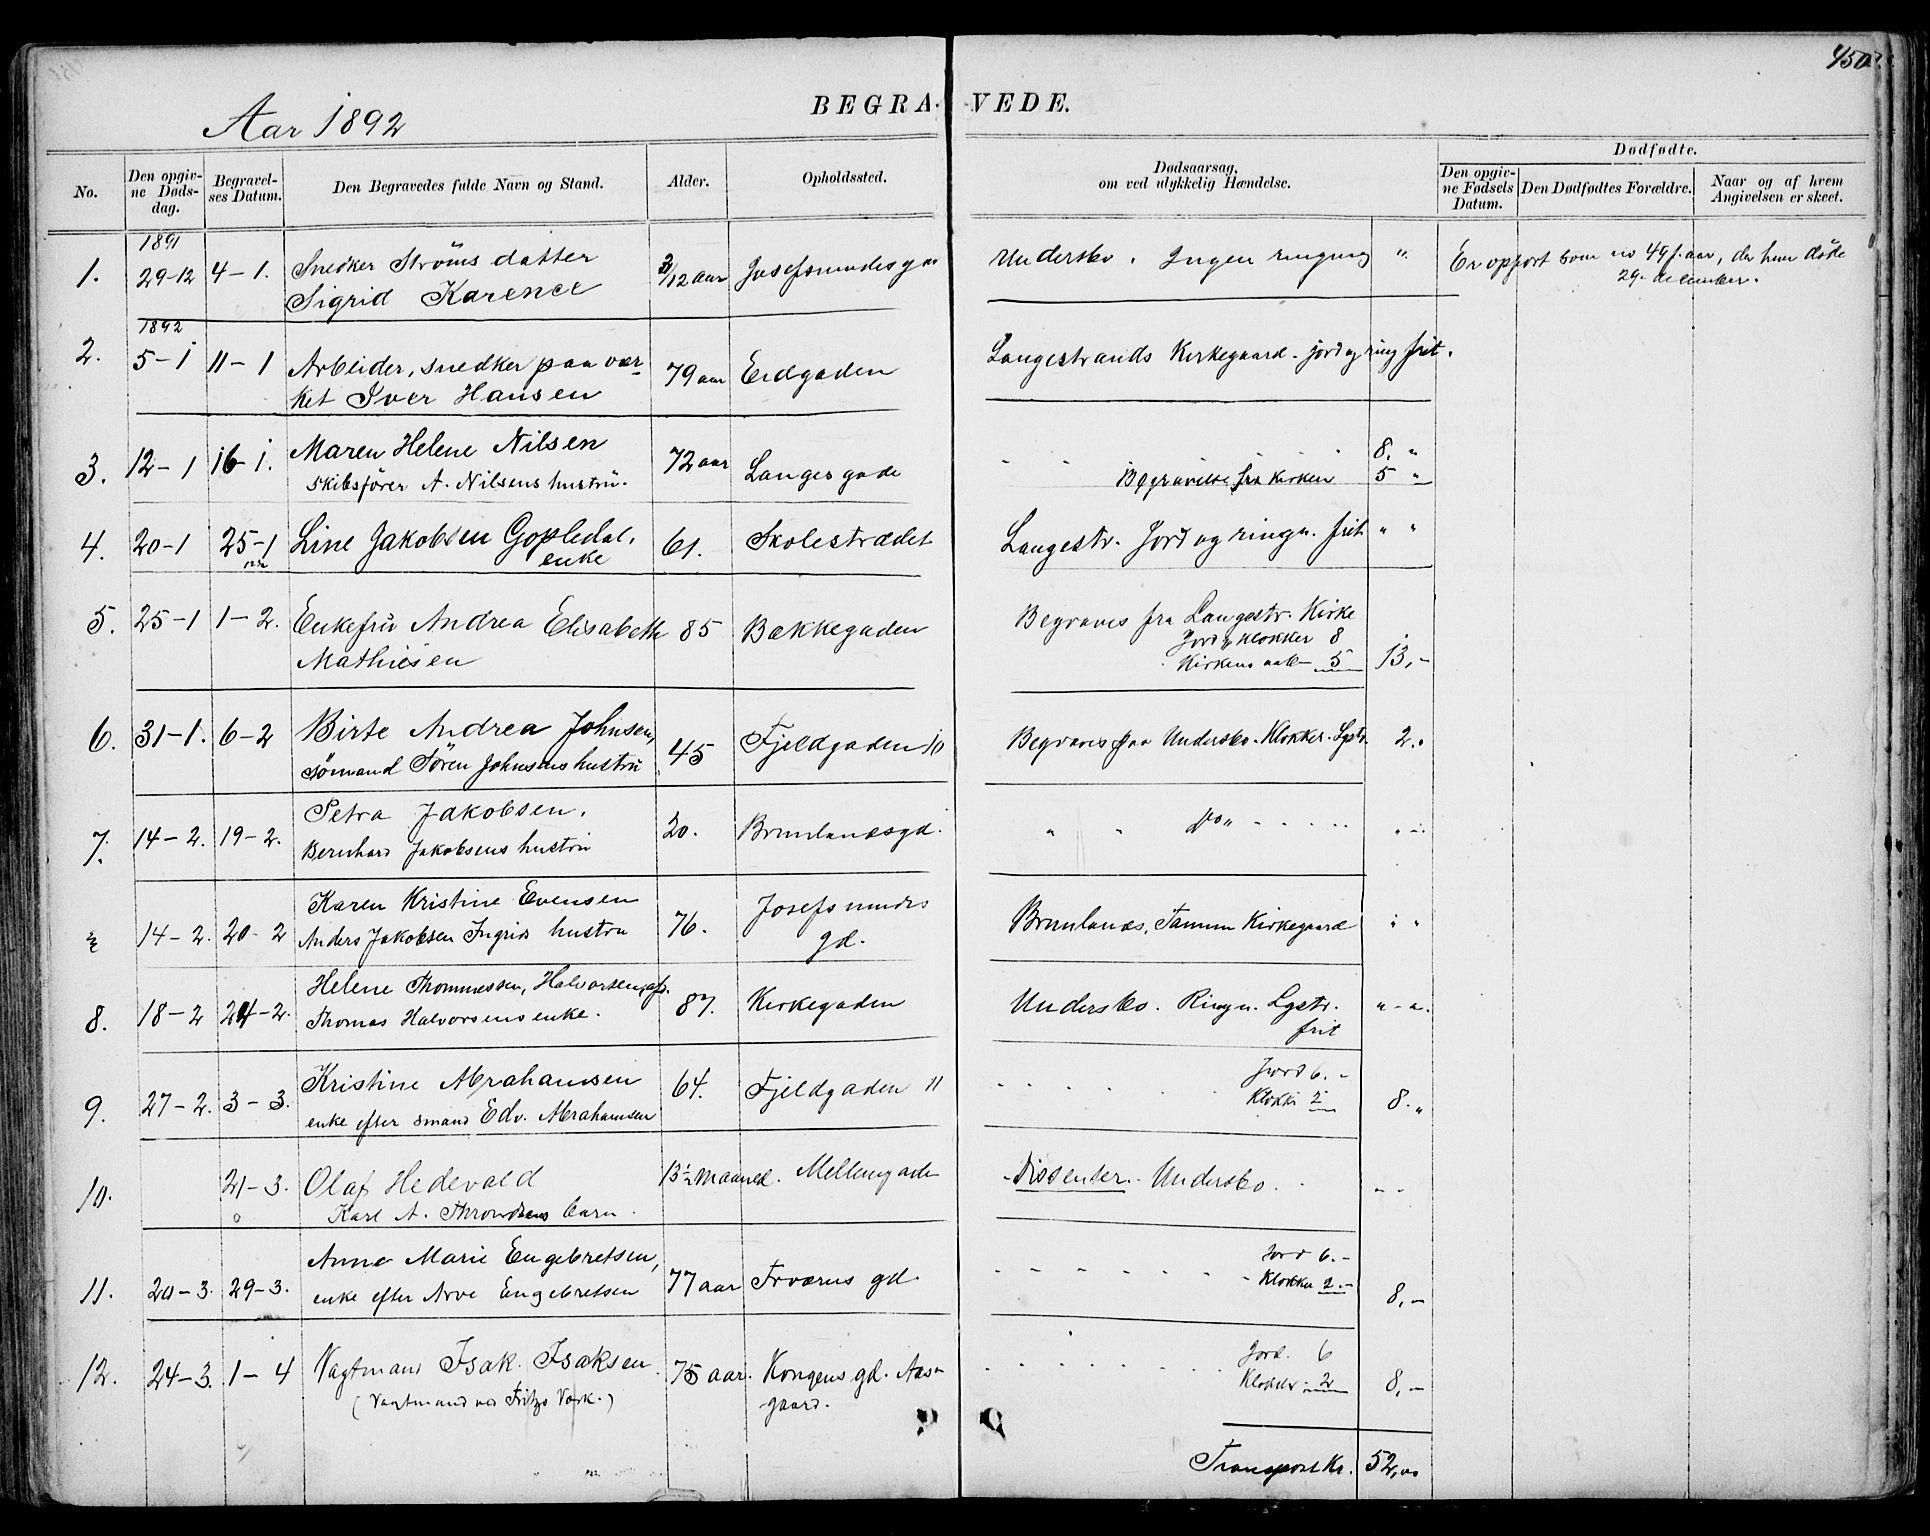 450
BEGRAVEDE.
Aar 1892
No. Den opgivne Dødsdag. Begravelses Datum. Den Begravedes fulde Navn og Stand. Alder. Opholdssted. Dødsaarsag, om ved ulykkelig Hændelse. Dødfødte.
Den opgivne Fødsels Datum. Den Dødfødtes Forældre. Naar og af hvem Angivelsen er skeet.
1891
1. 29-12 4-1. Snedker Ströms datter 3/12 aar Josefsmindes Undersbo. Ingen ringning " Er opfört som no 49 f. aar, da hun döde
Sigrid Karence 29. december.
1892
2. 5-1 11-1 Arbeider, snedker paa vær- 79 aar Eidgaden Langestrands Kirkegaard. jord og ring frit.
ket Iver Hansen
3. 12-1 16-1. Maren Helene Nilsen 72 aar Langesgade " " " 8. "
Skibsförer A. Nilsens hustru. Begravelse fra Kirken 5 "
4. 20-1 25-1 Line Jakobsen Gopledal, 61. Skolestrædet Langestr. Jord og ringn. frit " "
enke
5. 25-1 1-2. Enkefru Andrea Elisabeth 85 Bækkegaden Begraves fra Langestr. Kirke
Mathiesen Jord og klokker 8
Kirkens 5 13,-
6. 31-1. 6-2 Birte Andrea Johnsen, 45 Fjeldgaden 10 Begraves paa Undersbo. Klokker. Lgstr. 2."
sömand Sören Johnsens hustru
7. 14-2. 19-2. Petra Jakobsen. 20. Brunlanæsgd. " " Do " " "
Bernhard Jakobsens hustru
14-2. 20-2 Karen Kristine Evensen 76. Josefsmindes gd. Brunlanæs, Tanum Kirkegaard " "
Anders Jakobsen Ingrids hustru
8. 18-2 24-2. Helene Thommessen, Halvorsen 87. Kirkegaden Undersbo. Ringn. Lgstr. "-".
Thomas Halvorsens enke. frit
9. 27-2. 3-3. Kristine Abrahamsen 64. Fjeldgaden 11 Jord 6.-
enke efter smand Edv. Abrahamsen Klokke 2 8."
10. 21-3. Olaf Hedevald 13½ maaned. Mellemgaden - Dissenter. Undersbo. " "
Karl A. Throndsens barn.
11. 20-3. 29-3. Anne Marie Engebretsen, 77 aar Torværns gd. Jord 6.-
enke efter Arve Engebretsen Klokker 2.- 8,-
12. 24-3. 1-4 Vagtmand Isak Isaksen 75 aar. Kongens gd. Aas- Jord. 6
(Vagtmand ved Fritzø Værk.) gaard. Klokker 2 8,-
Transport Kr. 52,00